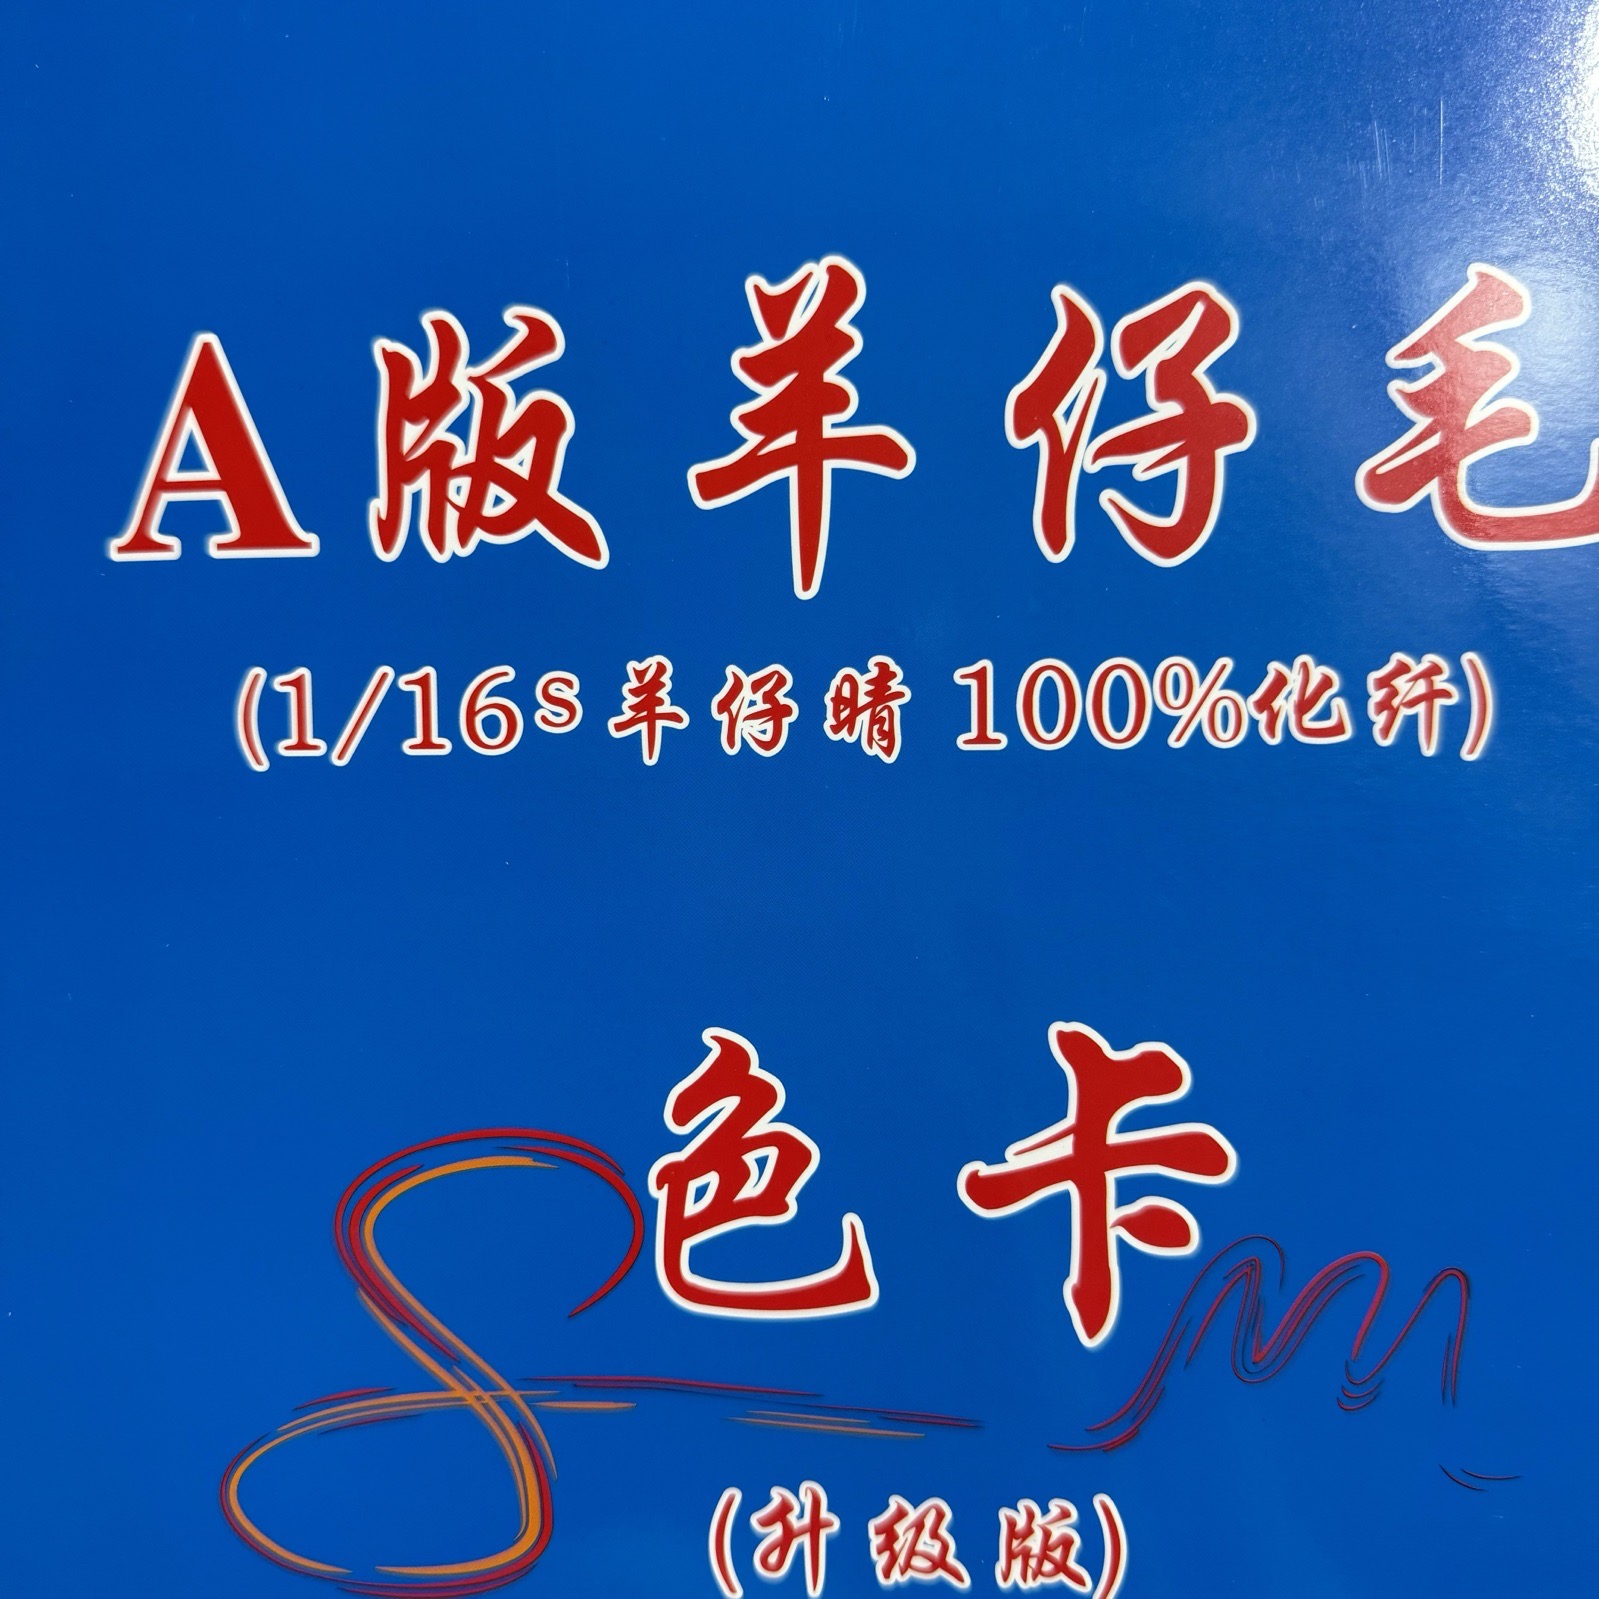 A版羊仔毛
(1/16s羊仔晴 100%化纤)
色卡
(升级版)